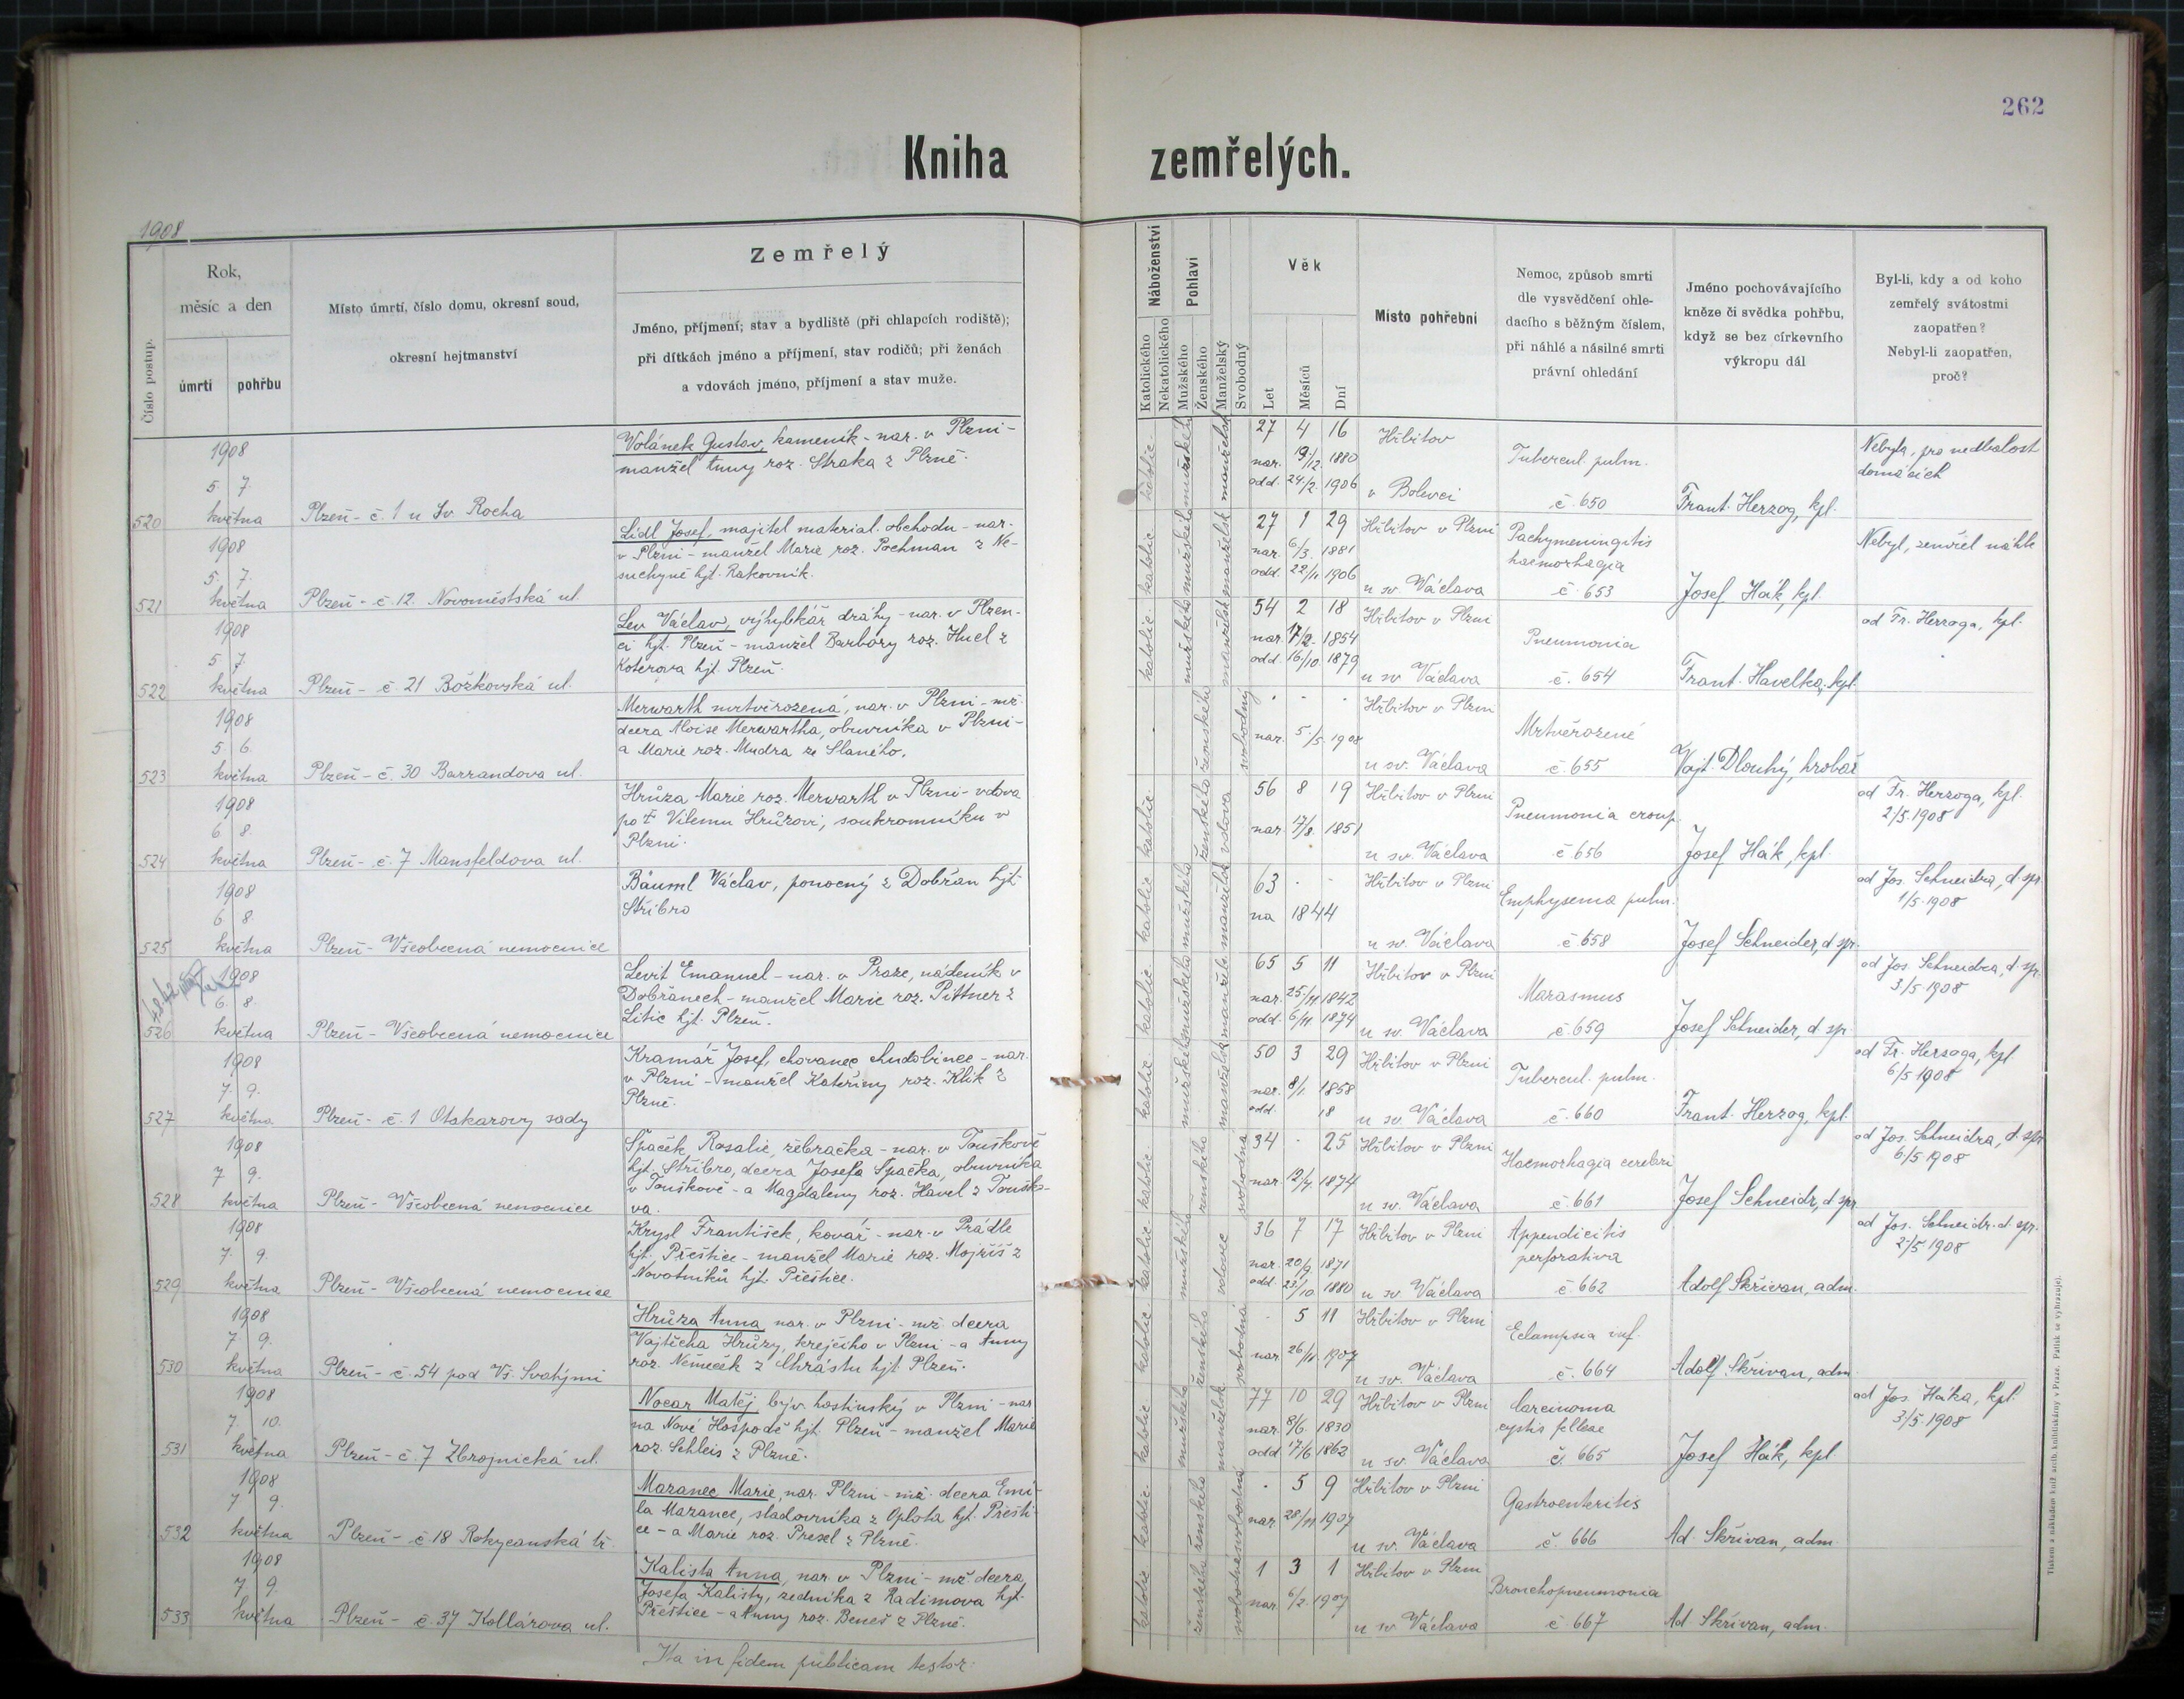 262
Kniha zemřelých.
1908
Číslo postup.
Rok,
měsíc a den
úmrtí
pohřbu
Místo úmrtí, číslo domu, okresní soud,
okresní hejtmanství
Zemřelý
Jméno, příjmení; stav a bydliště (při chlapcích rodiště);
při dítkách jméno a příjmení, stav rodičů; při ženách
a vdovách jméno, příjmení a stav muže.
Náboženství
Katolického
Nekatolického
Pohlaví
Mužského
Ženského
Manželský
Svobodný
Věk
Let
Měsíců
Dní
Místo pohřební
Nemoc, způsob smrti
dle vysvědčení ohle-
dacího s běžným číslem,
při náhlé a násilné smrti
právní ohledání
Jméno pochovávajícího
kněze či svědka pohřbu,
když se bez církevního
výkropu dál
Byl-li, kdy a od koho
zemřelý svátostmi
zaopatřen?
Nebyl-li zaopatřen,
proč?
520
1908
5. 7.
května
Plzeň - č. 1 u Sv Rocha
Volánek Gustav, kameník - nar. v Plzni -
manžel Anny roz. Straka z Plzně.
katolic. mužského manželsk
27 4 16
nar. 19/12. 1880
odd. 24/2. 1906
Hřbitov
v Bolevci
Tubercul. pulm.
č 650
Frant. Herzog, kpl.
Nebyla, pro nedbalost
domácích
521
1908
5. 7.
května
Plzeň - č 12. Novoměstská ul
Lidl Josef, majitel material. obchodu - nar.
v Plzni - manžel Marie roz. Pochman z Ne-
suchyně hjt. Rakovník.
katolic. mužského manželsk
27 1 29
nar. 6/3. 1881
odd. 22/11 1906
Hřbitov v Plzni
u sv. Václava
Pachymeningitis
haemorhagia
č 653
Josef Hák, kpl.
Nebyl, zemřel náhle
522
1908
5. 7.
května
Plzeň - č. 21 Božkovská ul.
Lev Václav, výhybkář dráhy - nar. v Plzen-
ci hjt. Plzeň - manžel Barbory roz. Hucl z
Koterova hjt Plzeň.
katolic. mužského manželsk
54 2 18
nar. 17/2. 1854
odd. 16/10. 1879
Hřbitov v Plzni
u sv Václava
Pneumonia
č. 654
Frant. Havelka, kpl.
od Fr. Herzoga, kpl.
523
1908
5. 6.
května
Plzeň - č. 30 Barrandova ul.
Merwarth mrtvěrozená, nar. v Plzni - mž.
dcera Aloise Merwartha, obuvníka v Plzni -
a Marie roz. Mudra ze Slaného.
ženského svobodný
nar. 5./5. 1908
Hřbitov v Plzni
u sv. Václava
Mrtvěrozené
č. 655
Vojt. Dlouhý, hrobař
524
1908
6. 8.
května
Plzeň - č. 7 Mansfeldova ul.
Hrůza Marie roz. Merwarth v Plzni - vdova
po † Vilému Hrůzovi, soukromníku v
Plzni.
katolic. ženského vdova
56 8 19
nar. 17/8. 1851
Hřbitov v Plzni
u sv. Václava
Pneumonia croup.
č 656
Josef Hák, kpl.
od Fr. Herzoga, kpl.
2/5. 1908
525
1908
6. 8.
května
Plzeň - Všeobecná nemocnice
Bäuml Václav, ponocný z Dobřan hjt.
Stříbro
katolic mužského manželsk
63 . .
na 1844
Hřbitov v Plzni
u sv. Václava
Emphysema pulm.
č 658
Josef Schneider, d. spr.
od Jos. Schneidra, d. spr.
1/5. 1908
526
1908
6. 8.
května
Plzeň - Všeobecná nemocnice
Levit Emanuel - nar. v Praze, nádeník v
Dobřanech - manžel Marie roz. Pittner z
Litic hjt. Plzeň.
katolic. mužského manžels.
65 5 11
nar. 25./11 1842
odd. 6/11 1874
Hřbitov v Plzni
u sv. Václava
Marasmus
č 659
Josef Schneider, d. spr.
od Jos. Schneidra, d. spr.
3/5. 1908
527
1908
7. 9.
května
Plzeň - č. 1 Otakarovy sady
Kramář Josef, chovanec chudobince - nar.
v Plzni - manžel Kateřiny roz. Klik z
Plzně.
katolic mužského manželsk
50 3 29
nar. 8/1. 1858
odd. 18
Hřbitov v Plzni
u sv. Václava
Tubercul. pulm.
č. 660
Frant. Herzog, kpl.
od Fr. Herzoga, kpl
6/5 1908
528
1908
7 9.
května
Plzeň - Všeobecná nemocnice
Špaček Rosalie, žebračka - nar. v Touškově
hjt. Stříbro, dcera Josefa Špačka, obuvníka
v Touškově - a Magdaleny roz. Havel z Touško-
va.
katolic ženského svobodná
34 . 25
nar. 12/4. 1874
Hřbitov v Plzni
u sv. Václava
Haemorhagia cerebri
č 661
Josef Schneidr, d spr
od Jos. Schneidra, d. spr.
6/5 1908
529
1908
7. 9.
května
Plzeň - Všeobecná nemocnice
Krysl František, kovář - nar. v Prádle
hjt. Přeštice - manžel Marie roz. Mojžíš z
Novotníků hjt. Přeštice.
katolic mužského vdovec
36 7 17
nar. 20/9. 1871
odd. 23/10. 1880
Hřbitov v Plzni
u sv. Václava
Appendicitis
perforativa
č 662
Adolf Skřivan, adm.
od Jos. Schneidr. d. spr.
2/5 1908
530
1908
7 9.
května
Plzeň - č. 54 pod Vš. Svatými
Hrůza Anna nar. v Plzni - mž. dcera
Vojtěcha Hrůzy, krejčího v Plzni - a Anny
roz. Němeček z Chrástu hjt Plzeň.
katolic ženského svobodná
. 5 11
nar. 26/11. 1907
Hřbitov v Plzni
u sv. Václava
Eclampsia inf.
č. 664
Adolf Skřivan, adm
531
1908
7. 10.
května
Plzeň - č. 7 Zbrojnická ul.
Nocar Matěj, býv. hostinský v Plzni - nar
na Nové Hospodě hjt. Plzeň - manžel Marie
roz. Schleis z Plzně.
katolic mužského manželsk
77 10 29
nar. 8/6. 1830
odd. 17/6 1862
Hřbitov v Plzni
u sv. Václava
Carcinoma
cystis felleae
č. 665
Josef Hák, kpl.
od Jos. Háka, kpl.
3/5. 1908
532
1908
7 9.
května
Plzeň - č 18 Rokycanská tř.
Mazanec Marie, nar. Plzni - mž. dcera Emi-
la Mazance, sladovníka z Oplota hjt. Přešti-
ce - a Marie roz. Presel z Plzně.
katolic. ženského svobodná
. 5 9
nar. 28/11 1907
Hřbitov v Plzni
u sv. Václava
Gastroenteritis
č. 666
Ad. Skřivan, adm
533
1908
7. 9.
května
Plzeň - č. 37 Kollárova ul.
Kalista Anna, nar. v Plzni - mž. dcera
Josefa Kalisty, zedníka z Radimova hjt.
Přeštice - a Anny roz. Beneš z Plzně.
katolic ženského svobodné
1 3 1
nar. 6/2. 1907
Hřbitov v Plzni
u sv. Václava
Bronchopneumonia
č 667
Ad Skřivan, adm.
Ita in fidem publicam testor.